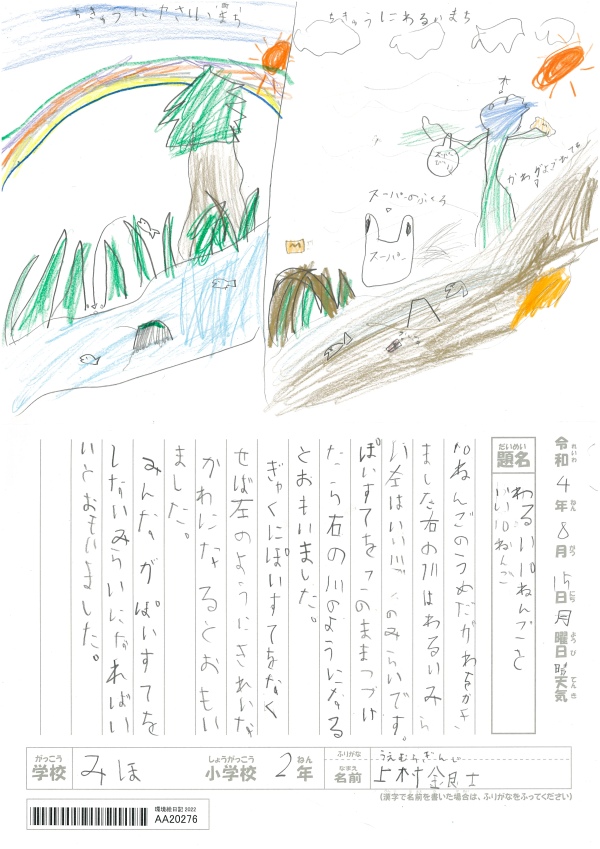 ちきゅうにやさしいまち
ちきゅうにわるいまち
スーパーのふくろ
スーパー
令和4年8月15日月曜日晴天気
れいわ ねん がつ にち ようび てんき
だいめい
題名
わるい10ねんごと
いい10ねんご
10ねんごのうめだがわをかき
ました右の川はわるいみら
い左はいい川のみらいです。
ぽいすてをこのままつづけ
たら右の川のようになる
とおもいました。
ぎゃくにぽいすてをなく
せば左のようにきれいな
かわになるとおもい
ました。
みんながぽいすてを
しないみらいになればい
いとおもいました。
がっこう
学校
みほ
しょうがっこう
小学校
2
ねん
年
ふりがな
うえむらぎんじ
なまえ
名前
上村銀士
(漢字で名前を書いた場合は、ふりがなをふってください)
環境絵日記 2022
AA20276